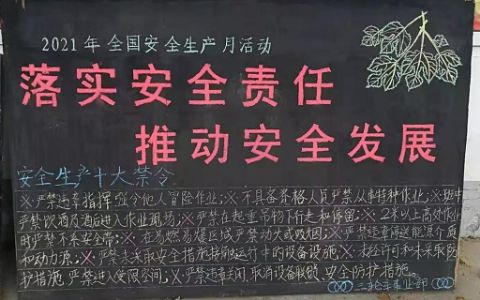 2021年全国安全生产月活动
落实安全责任
推动安全发展
安全生产十大禁令
※严禁违章指挥强令他人冒险作业;※不具备资格人员严禁从事特种作业;※班中
严禁饮酒及酒后进入作业现场;※严禁在起重吊物下行走和停留;※2米以上高处作业
时严禁不系安全带;※在易燃易爆区域严禁动火或吸烟;※严禁随意停送能源介质
和动力源;※严禁未采取安全措施接触运行中的设备设施;※未经许可和未采取防
护措施,严禁进入受限空间;※严禁违章关闭、取消设备联锁、安全防护措施。
三轮车事业部